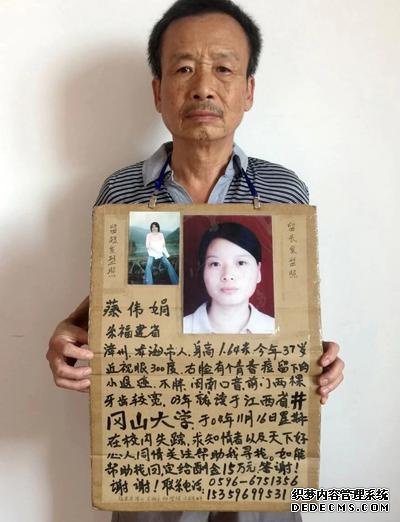 留短发型照
留长发型照
蔡伟娟
系福建省
漳州，龙海市人，身高1.64米今年37岁
近视眼300度，右脸有个青春痘留下的
小退迹，不胖闽南口音前门两棵
牙齿较宽，03年就读于江西省井
冈山大学于04年11月16日星期
在校内失踪，求知情者以及天下好
心人同情关注帮助我寻找。如能
帮助找回定给酬金15万元答谢！
谢谢！联系电话，0596-6751356
15359699531
织梦内容管理系统
DEDECMS.COM